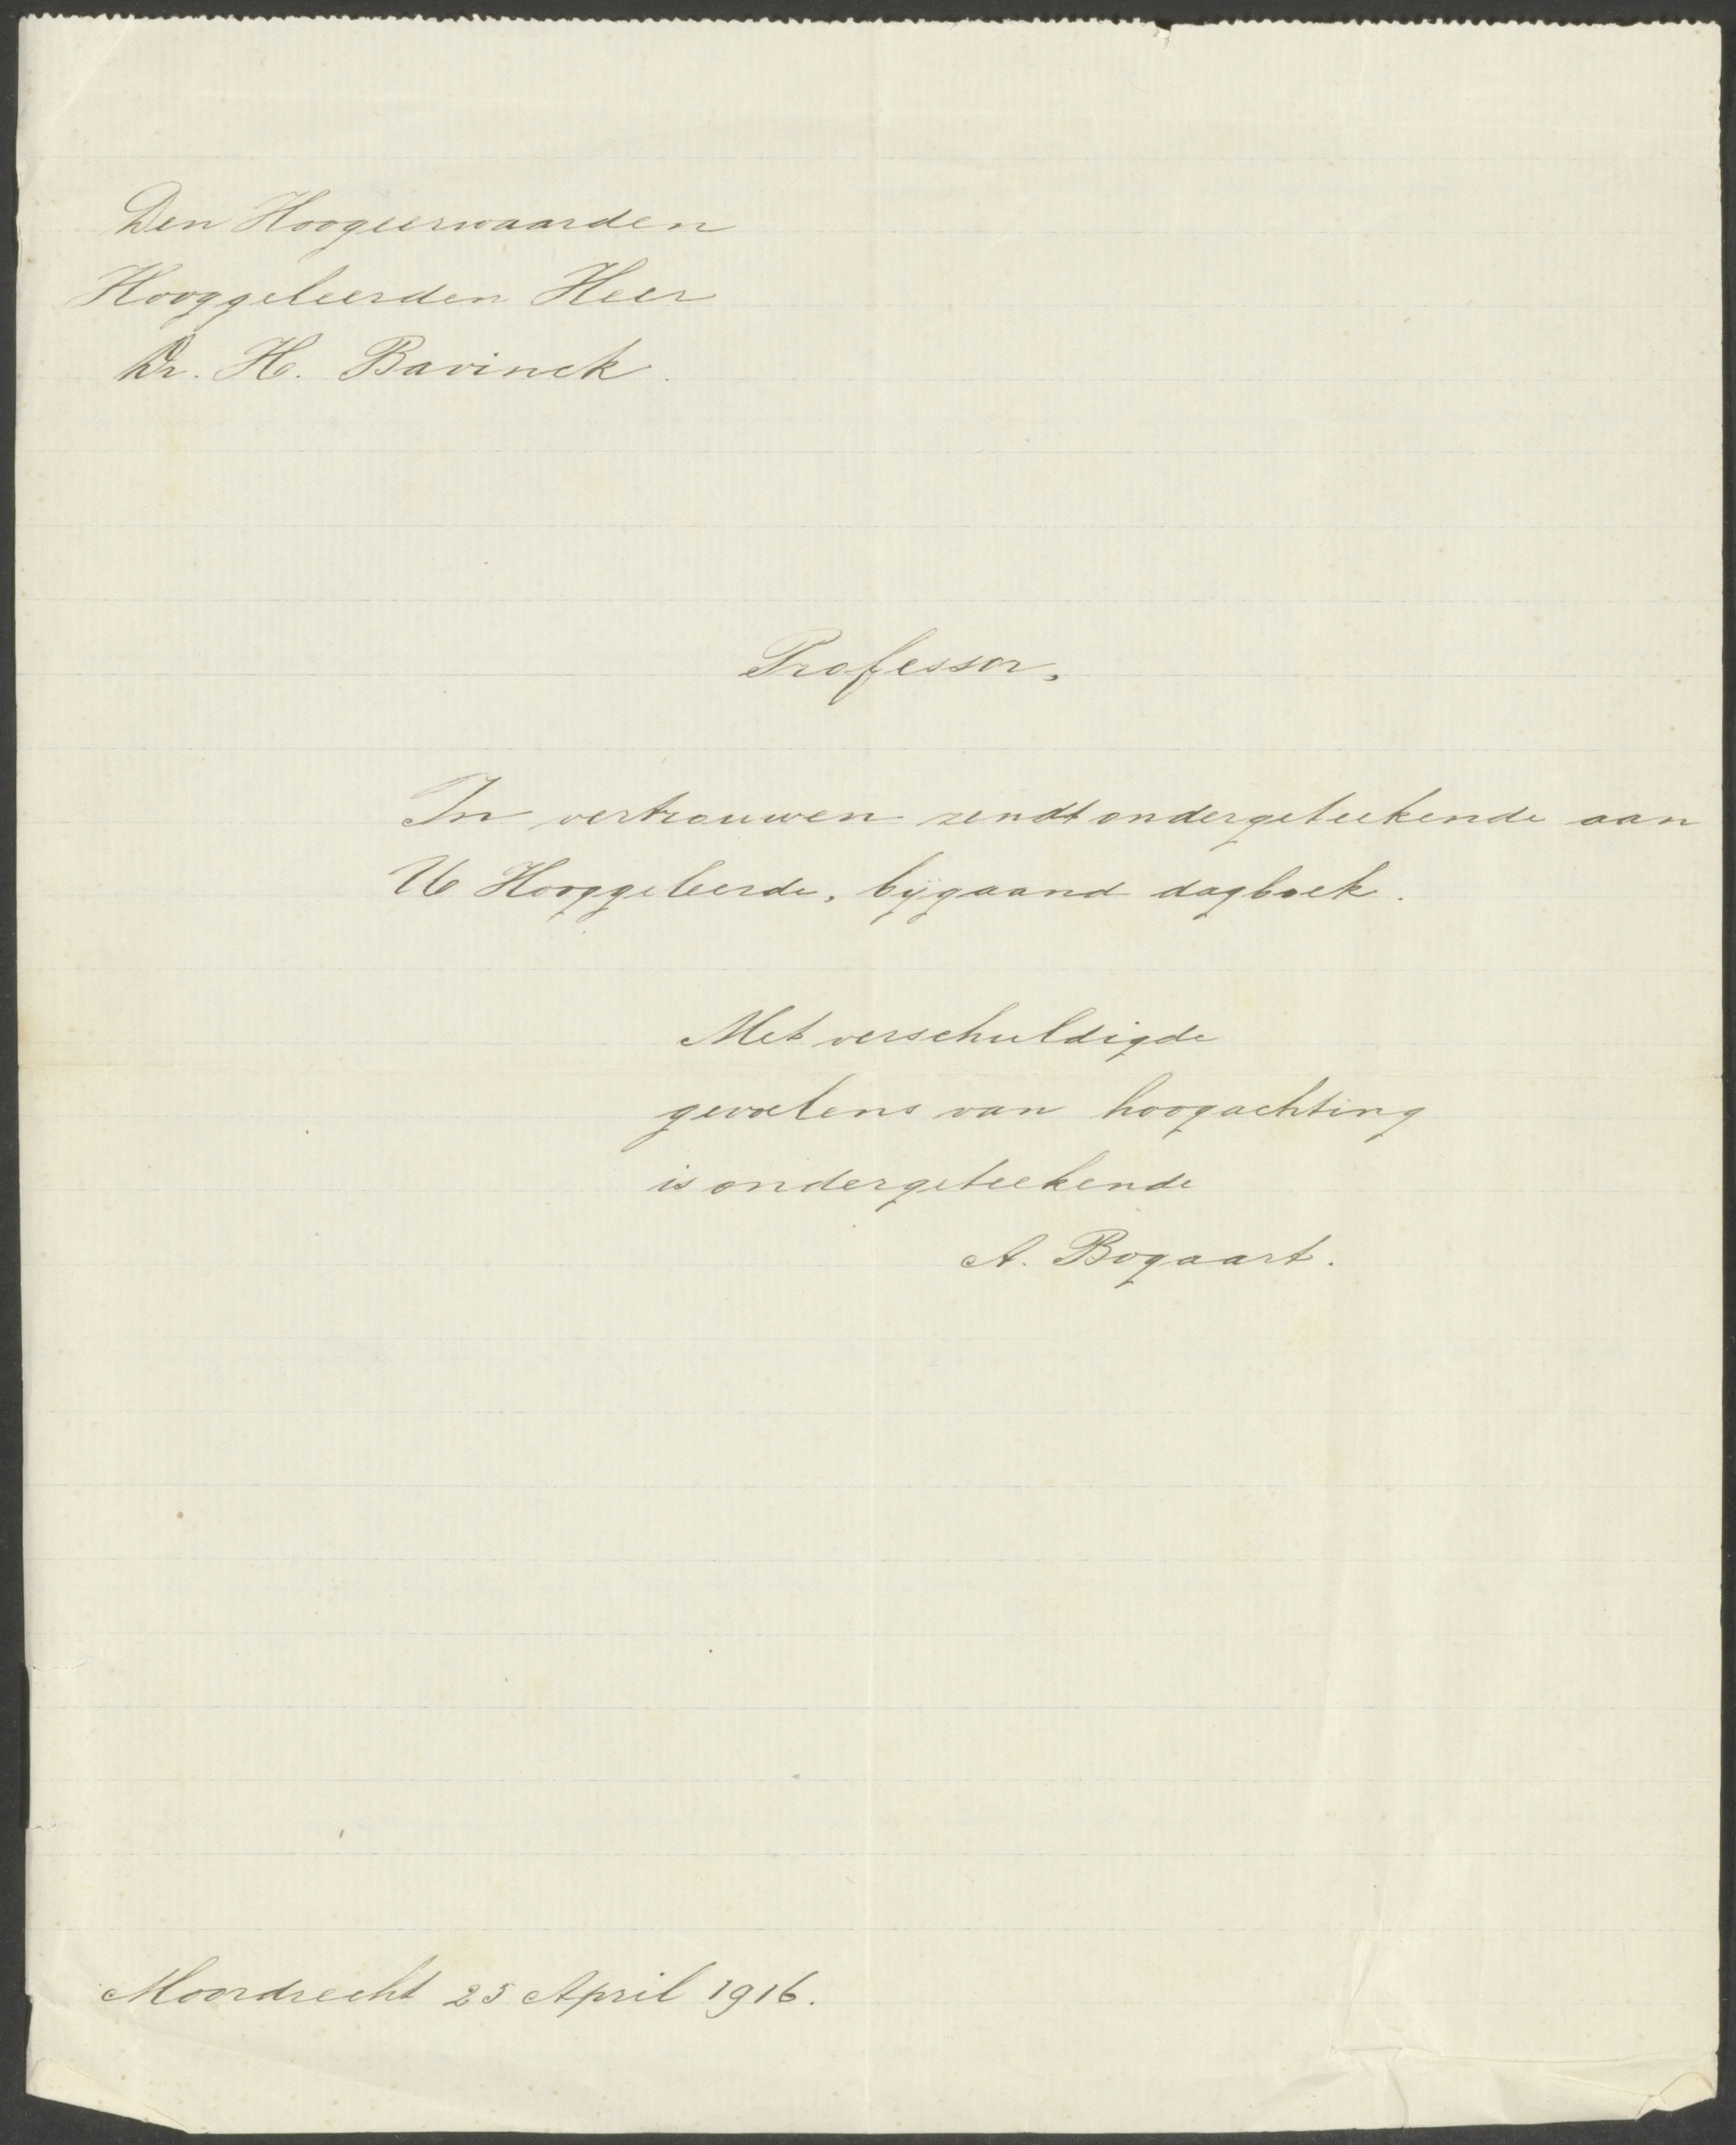 Den Hoogeerwaarden
Hooggeleerden Heer
Dr. H. Bavinck.
Professor,
In vertrouwen zendt ondergeteekende aan
U Hooggeleerde, bijgaand dagboek.
Met verschuldigde
gevoelens van hoogachting
is ondergeteekende
A. Bogaart.
Moordrecht 25 April 1916.